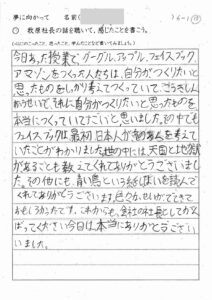 夢に向かって 名前( )6-1 ⑬
○ 萩原社長の話を聴いて、感じたことを書こう。
今日あった授業で、グーグル、アップル、フェイスブック、
アマゾンをつくった人たちは、自分がつくりたいと
思ったものをしっかり考えてつくっていて、
ていて、
自分がつくりたいと思ったものを
本当につくっていてすごいと思いました。その中でも
フェイスブックは最初日本人が
考えて
いたことがわかりました。世の中には、天国と地獄
があることも教えてくれてありがとうございまし
た。その他にも、青い鳥という紙しばいを読んで
くれてありがとうございます。色々な
できて
おもしろかったです。これからも、会社の社長としてがん
ばってください。今日は、本当にありがとうござい
いました。